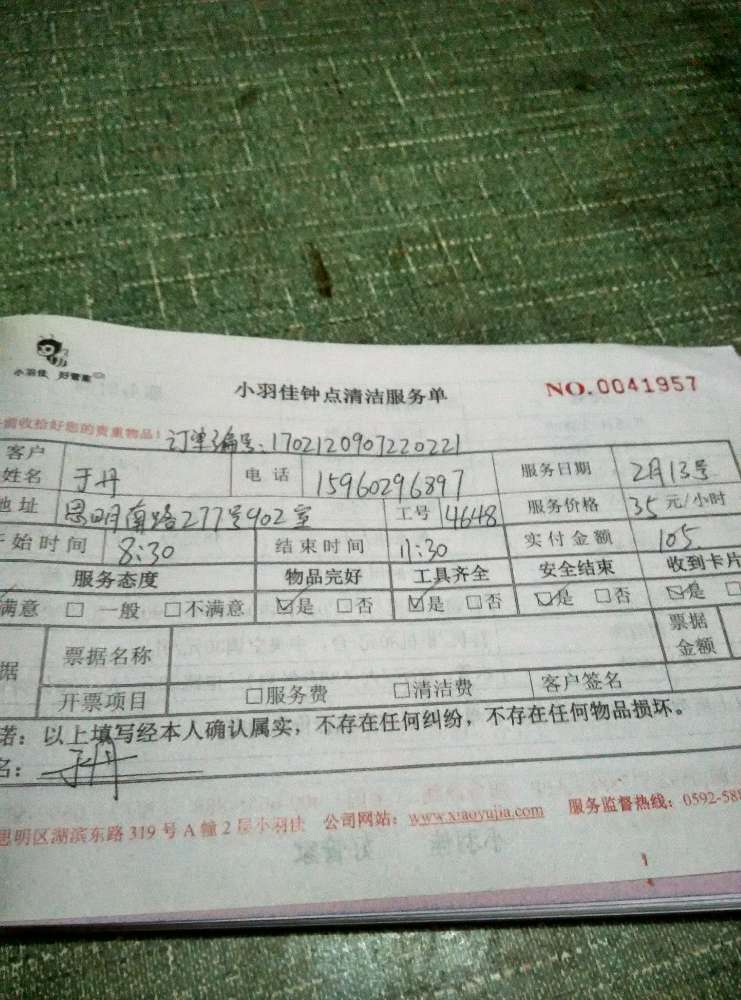 小羽佳 好管家
小羽佳钟点清洁服务单 NO.0041957
前收拾好您的贵重物品! 订单编号:1702120907220221
客户姓名 于丹 电话 15960296897 服务日期 2月13号
地址 思明南路277号902室 工号 4648 服务价格 35元/小时
开始时间 8:30 结束时间 11:30 实付金额 105
服务态度 物品完好 工具齐全 安全结束 收到卡片
满意 □一般 □不满意 ☑是 □否 ☑是 □否 ☑是 □否 ☑是 □
据 票据名称 票据金额
开票项目 □服务费 □清洁费 客户签名
诺:以上填写经本人确认属实,不存在任何纠纷,不存在任何物品损坏。
名:于丹
思明区湖滨东路319号A幢2层小羽佳 公司网站:www.xiaoyujia.com 服务监督热线:0592-588